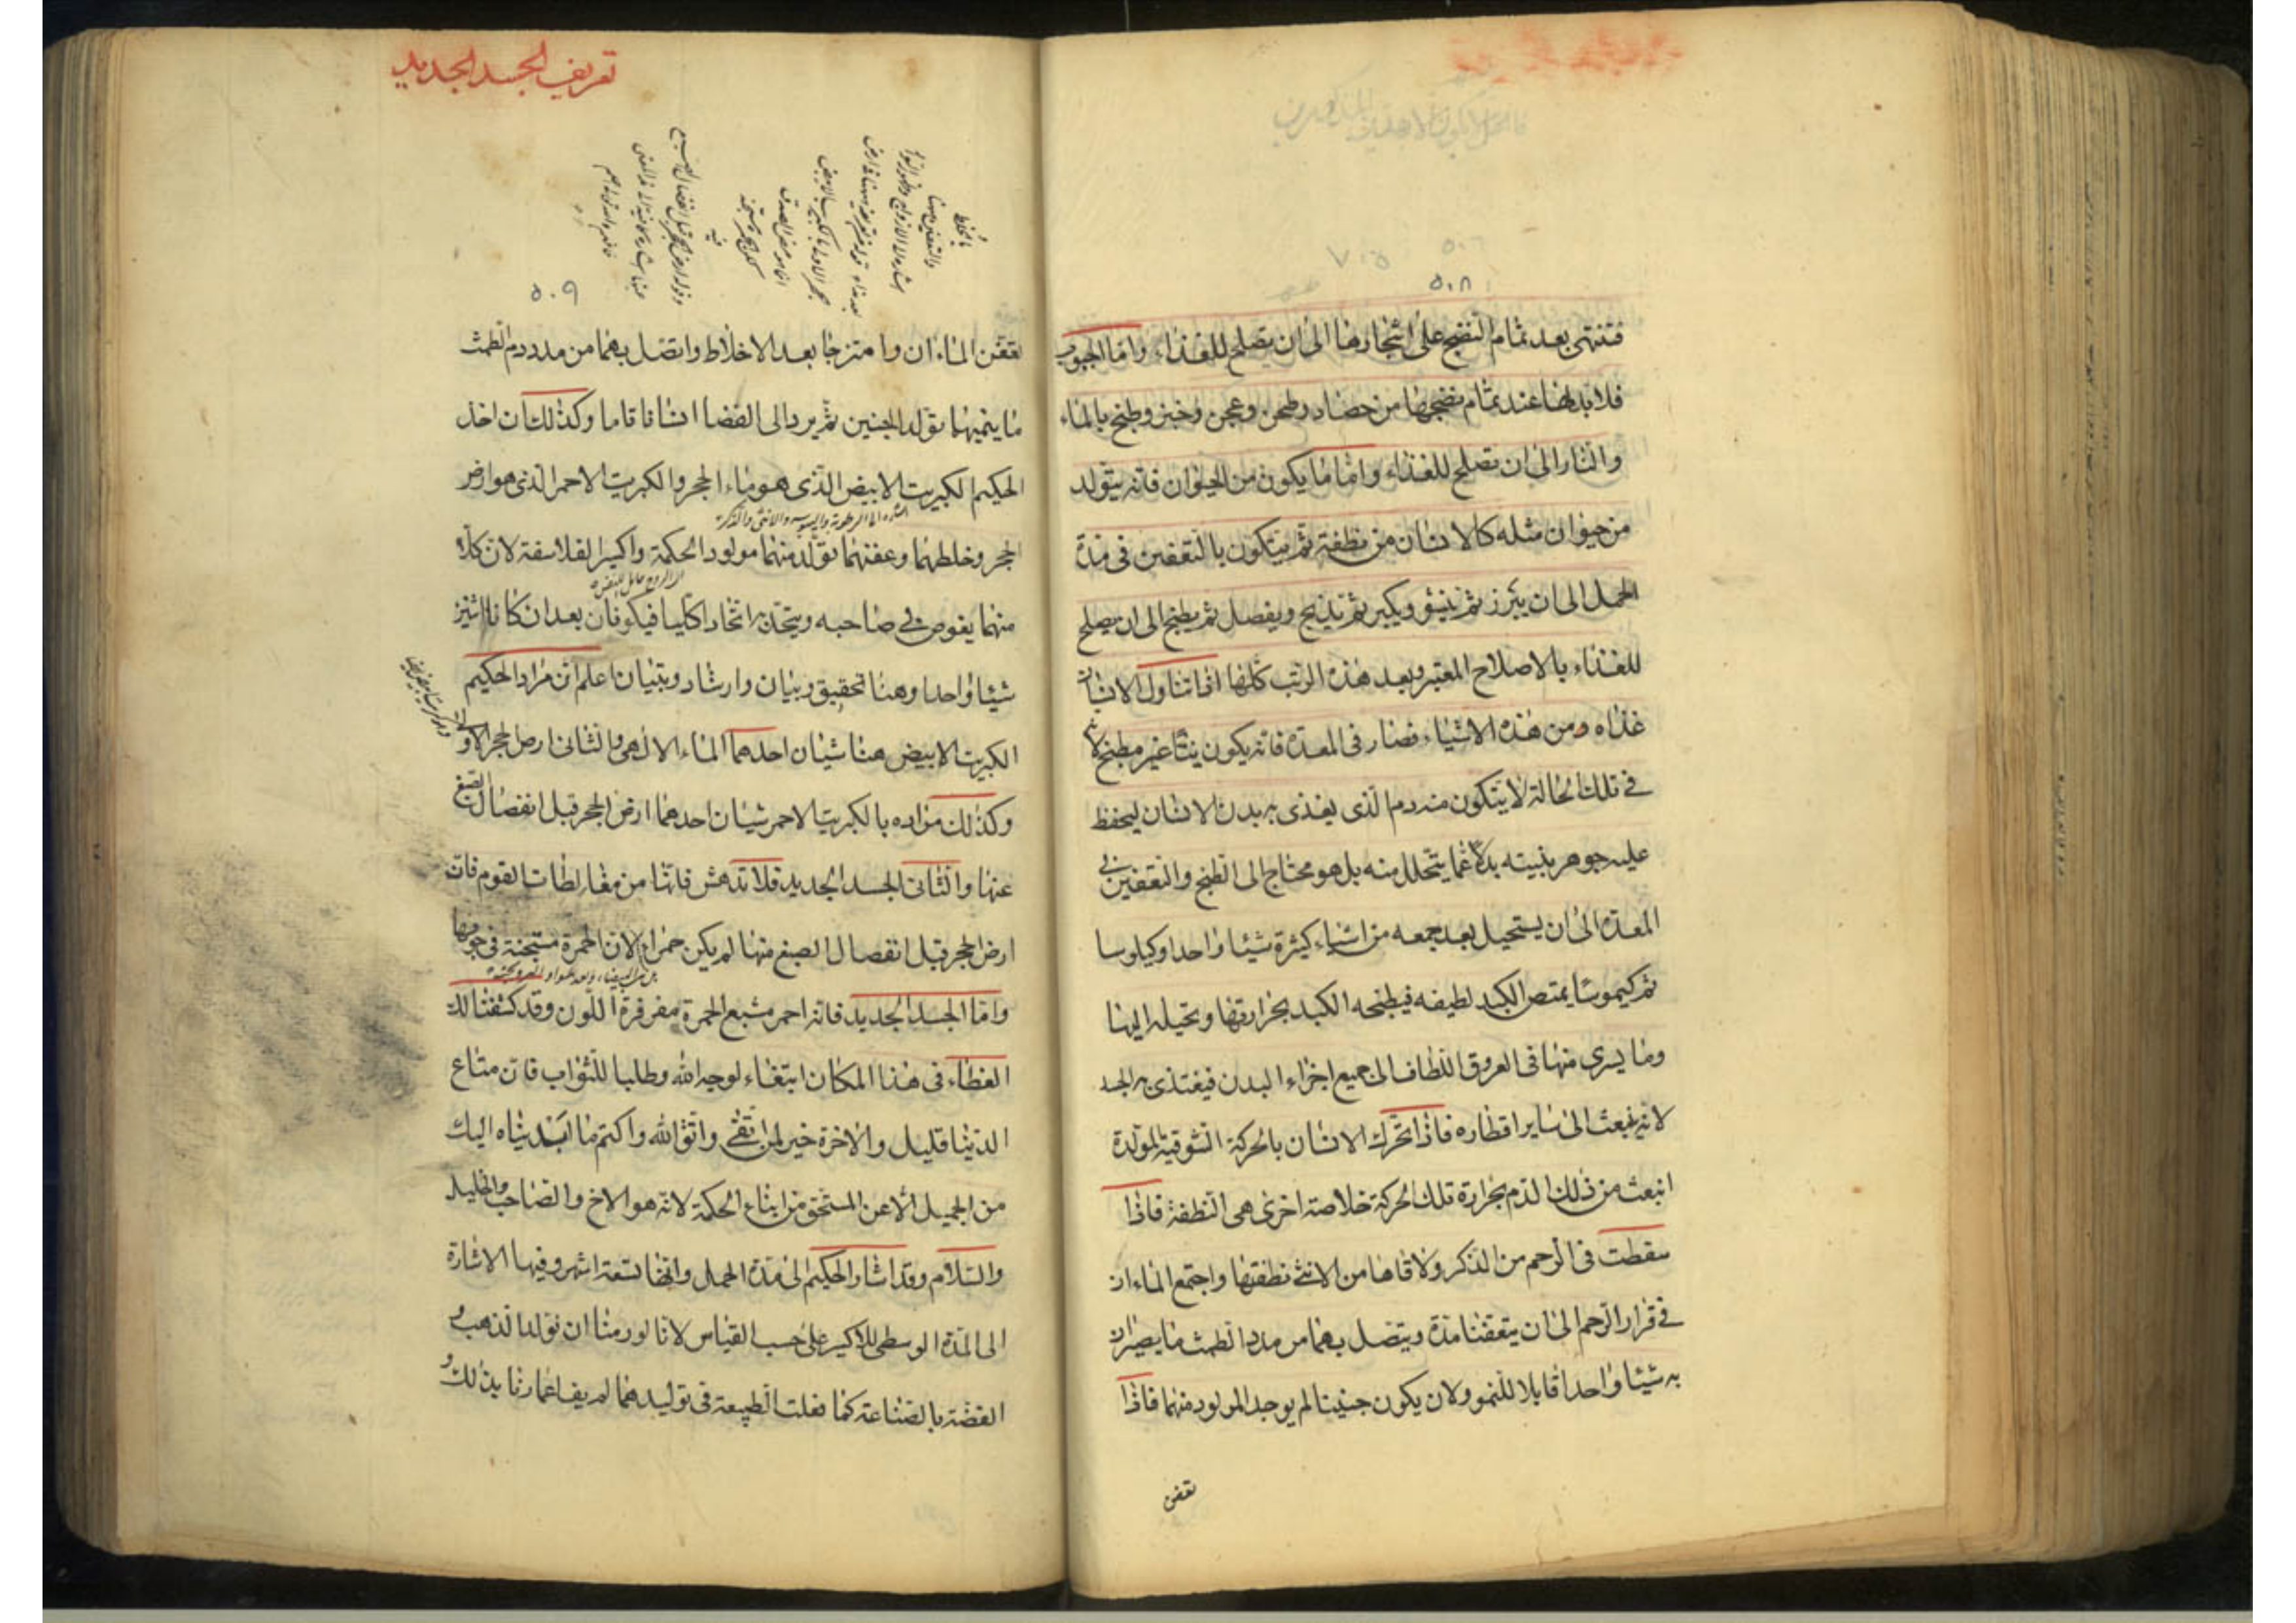 ٥٠٨
فتنتهى بعد تمام النضج على اشجارها الى ان تصلح للغذاء واما الحبوب
فلا بد لها عند تمام نضجها من حصاد وطحن وعجن وخبز وطبخ بالماء
والنار الى ان تصلح للغذاء واما ما يكون من الحيوان فانه يتولد
من حيوان مثله كالانسان من نطفة ثم يتكون بالتعفين فى مدة
الحمل الى ان يبرز ثم ينشو ويكبر ثم يذبح ويفصل ثم يطبخ الى ان يصلح
للغذاء بالاصلاح المعتبر وبعد هذه الرتب كلها اذا تناول الانسان
غذاه ومن هذه الاشياء فصار فى المعدة فانه يكون نيئا غير مطبخ لانه
فى تلك الحالة لا يتكون منه دم الذى يغذى به بدن الانسان ليحفظ
عليه جوهر بنيته بدلا عما يتحلل منه بل هو محتاج الى الطبخ والتعفين فى
المعدة الى ان يستحيل بعد جمعه من اشياء كثيرة شيئا واحدا وكيلوسا
ثم كيموسا يمتص الكبد لطيفه فيطبخه الكبد بحرارتها وتحيله اليها
وما يسرى منها فى العروق اللطاف الى جميع اجزاء البدن فيغتذى به الجسد
لانه ينبعث الى ساير اقطاره فاذا تحرك الانسان بالحركة الشوقية المولدة
انبعث من ذلك الدم بحرارة تلك الحركة خلاصة اخرى هى النطفة فاذا
سقطت فى الرحم من الذكر ولاقاها من الانثى نطفتها واجتمع الماءان
فى قرار الرحم الى ان يتعفنا مدة ويتصل بهما من مدد الطمث ما يصيران
به شيئا واحدا قابلا للنمو ولان يكون جنينا لم يوجد المولود منهما فاذا
تعفن
تعريف الجسد الجديد
٥٠٩
تعفن الماءان وامتزجا بعد الاخلاط واتصل بهما من مدد دم الطمث
ما ينميهما تولد الجنين ثم يرد الى الفضا انسانا تاما وكذلك ان اخذ
الحكيم الكبريت الابيض الذى هو ماء الحجر والكبريت الاحمر الذى هو ارض
اشاره الى الرطوبة واليبوسه والانثى والذكر
الحجر وخلطهما وعفنهما تولد منهما مولود الحكمة واكسير الفلاسفة لان كلا
منهما يغوص فى صاحبه ويتحد به اتحادا كليا فيكونان بعد ان كانا اثنين
شيئا واحدا وهنا تحقيق وبيان وارشاد وتبيان اعلم ان مراد الحكيم
الكبريت الابيض هنا شيئان احدهما الماء الالهى والثانى ارض الحجر الاولى
وكذلك مراده بالكبريت الاحمر شيئان احدهما ارض الحجر قبل انفصال الصبغ
عنها والثانى الجسد الجديد فلا تدهش فانها من مغالطات القوم فان
ارض الحجر قبل انفصال الصبغ منها لم يكن حمرا الا ان الحمرة مستجنة فى جوفها
واما الجسد الجديد فانه احمر مشبع الحمرة مفرفرة اللون وقد كشفنا لك
الغطاء فى هذا المكان ابتغاء لوجه الله وطلبا للثواب فان متاع
الدنيا قليل والاخرة خير لمن اتقى واتق الله واكتم ما ابديناه اليك
من الجميل الا عن المستحق من ابناء الحكمة لانه هو الاخ والصاحب والخليل
والسلام وقد اشار الحكيم الى مدة الحمل وانها تسعة اشهر وفيها الاشارة
الى المدة الوسطى للاكسير على حسب القياس لانا لو رمنا ان نولد الذهب و
الفضة بالصناعة كما فعلت الطبيعة فى توليدهما لم يف اعمارنا بذلك و